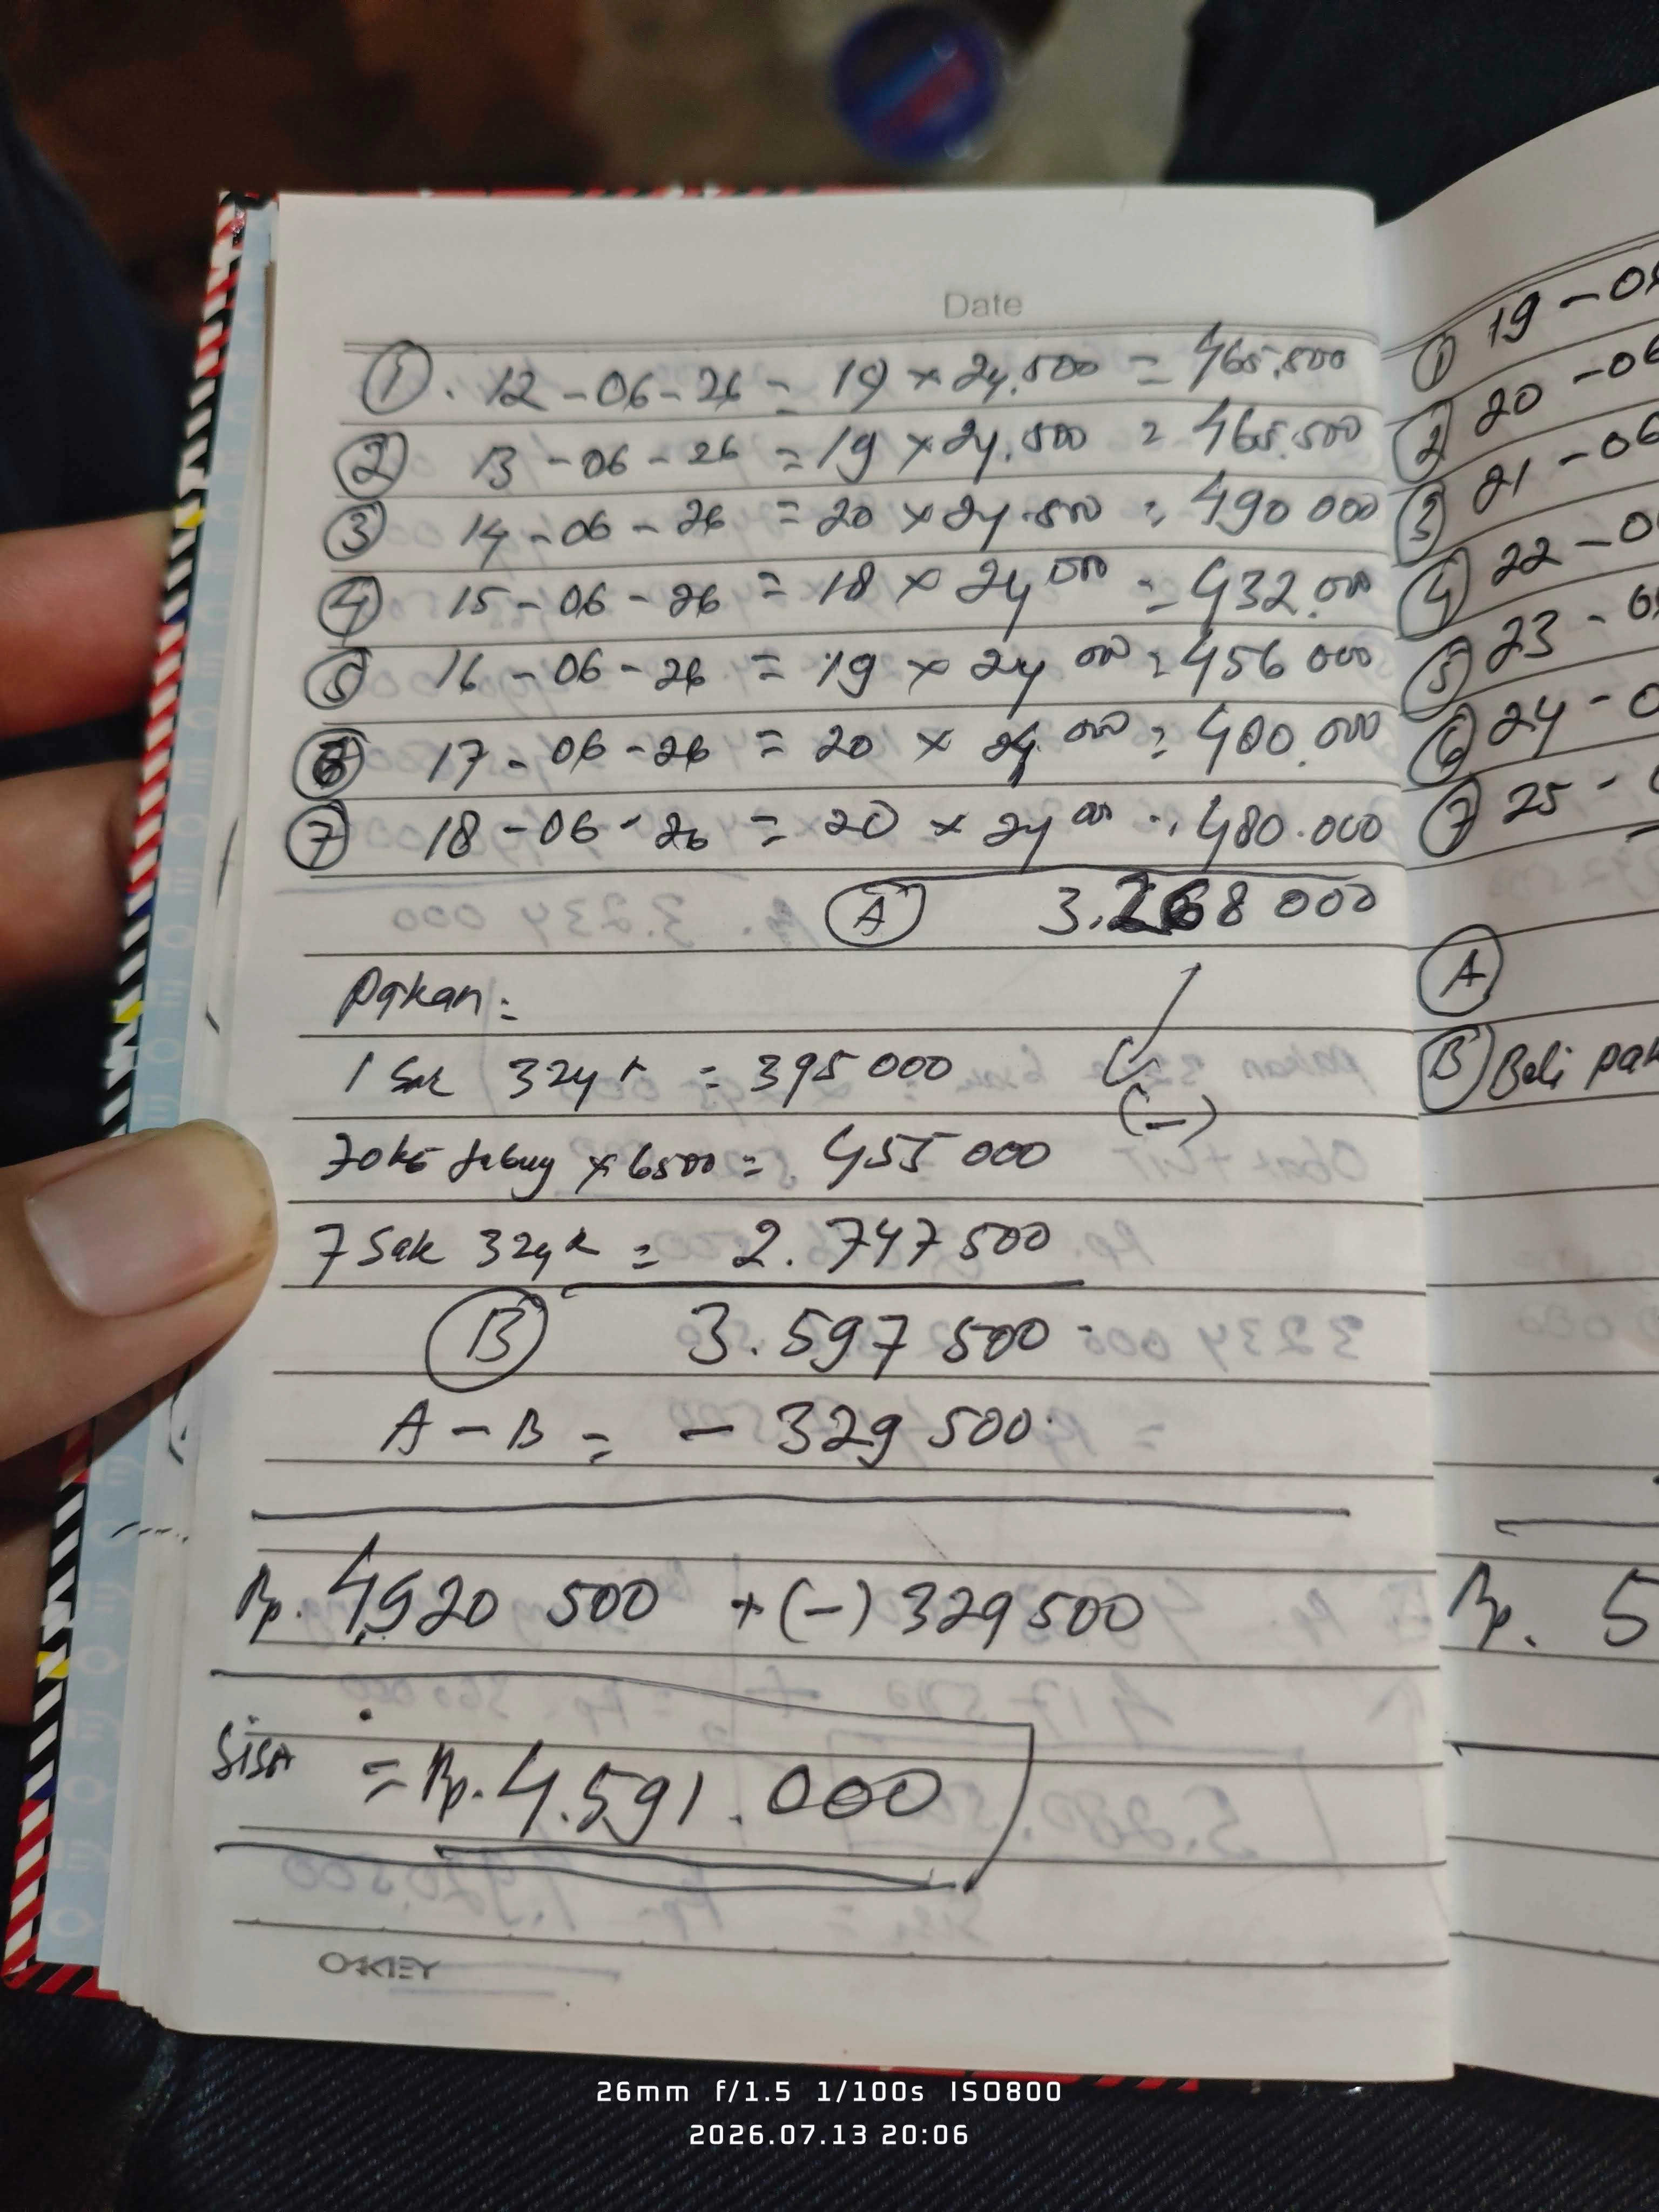 Date
① . 12 - 06 - 26 = 19 x 24.500 = 465.500
② 13 - 06 - 26 = 19 x 24.500 = 465.500
③ 14 - 06 - 26 = 20 x 24.500 = 490 000
④ 15 - 06 - 26 = 18 x 24 000 = 432.000
⑤ 16 - 06 - 26 = 19 x 24 000 = 456 000
⑥ 17 - 06 - 26 = 20 x 24.000 = 480.000
⑦ 18 - 06 - 26 = 20 x 24 000 = 480.000
Ⓐ 3.268 000
Pakan :
1 Sak 324 k = 395 000
(-)
70 kg x 6500 = 455 000
7 Sak 324 k = 2.747 500
Ⓑ 3.597 500
A - B = - 329 500
Rp. 4,920 500 + (-) 329 500
SISA = Rp. 4.591.000
OKEY
① 19 - 0
② 20 - 06
③ 21 - 06
④ 22 - 0
⑤ 23 - 0
⑥ 24 - 0
⑦ 25 -
Ⓐ
Ⓑ Beli pak
Rp. 5
26mm f/1.5 1/100s ISO800
2026.07.13 20:06